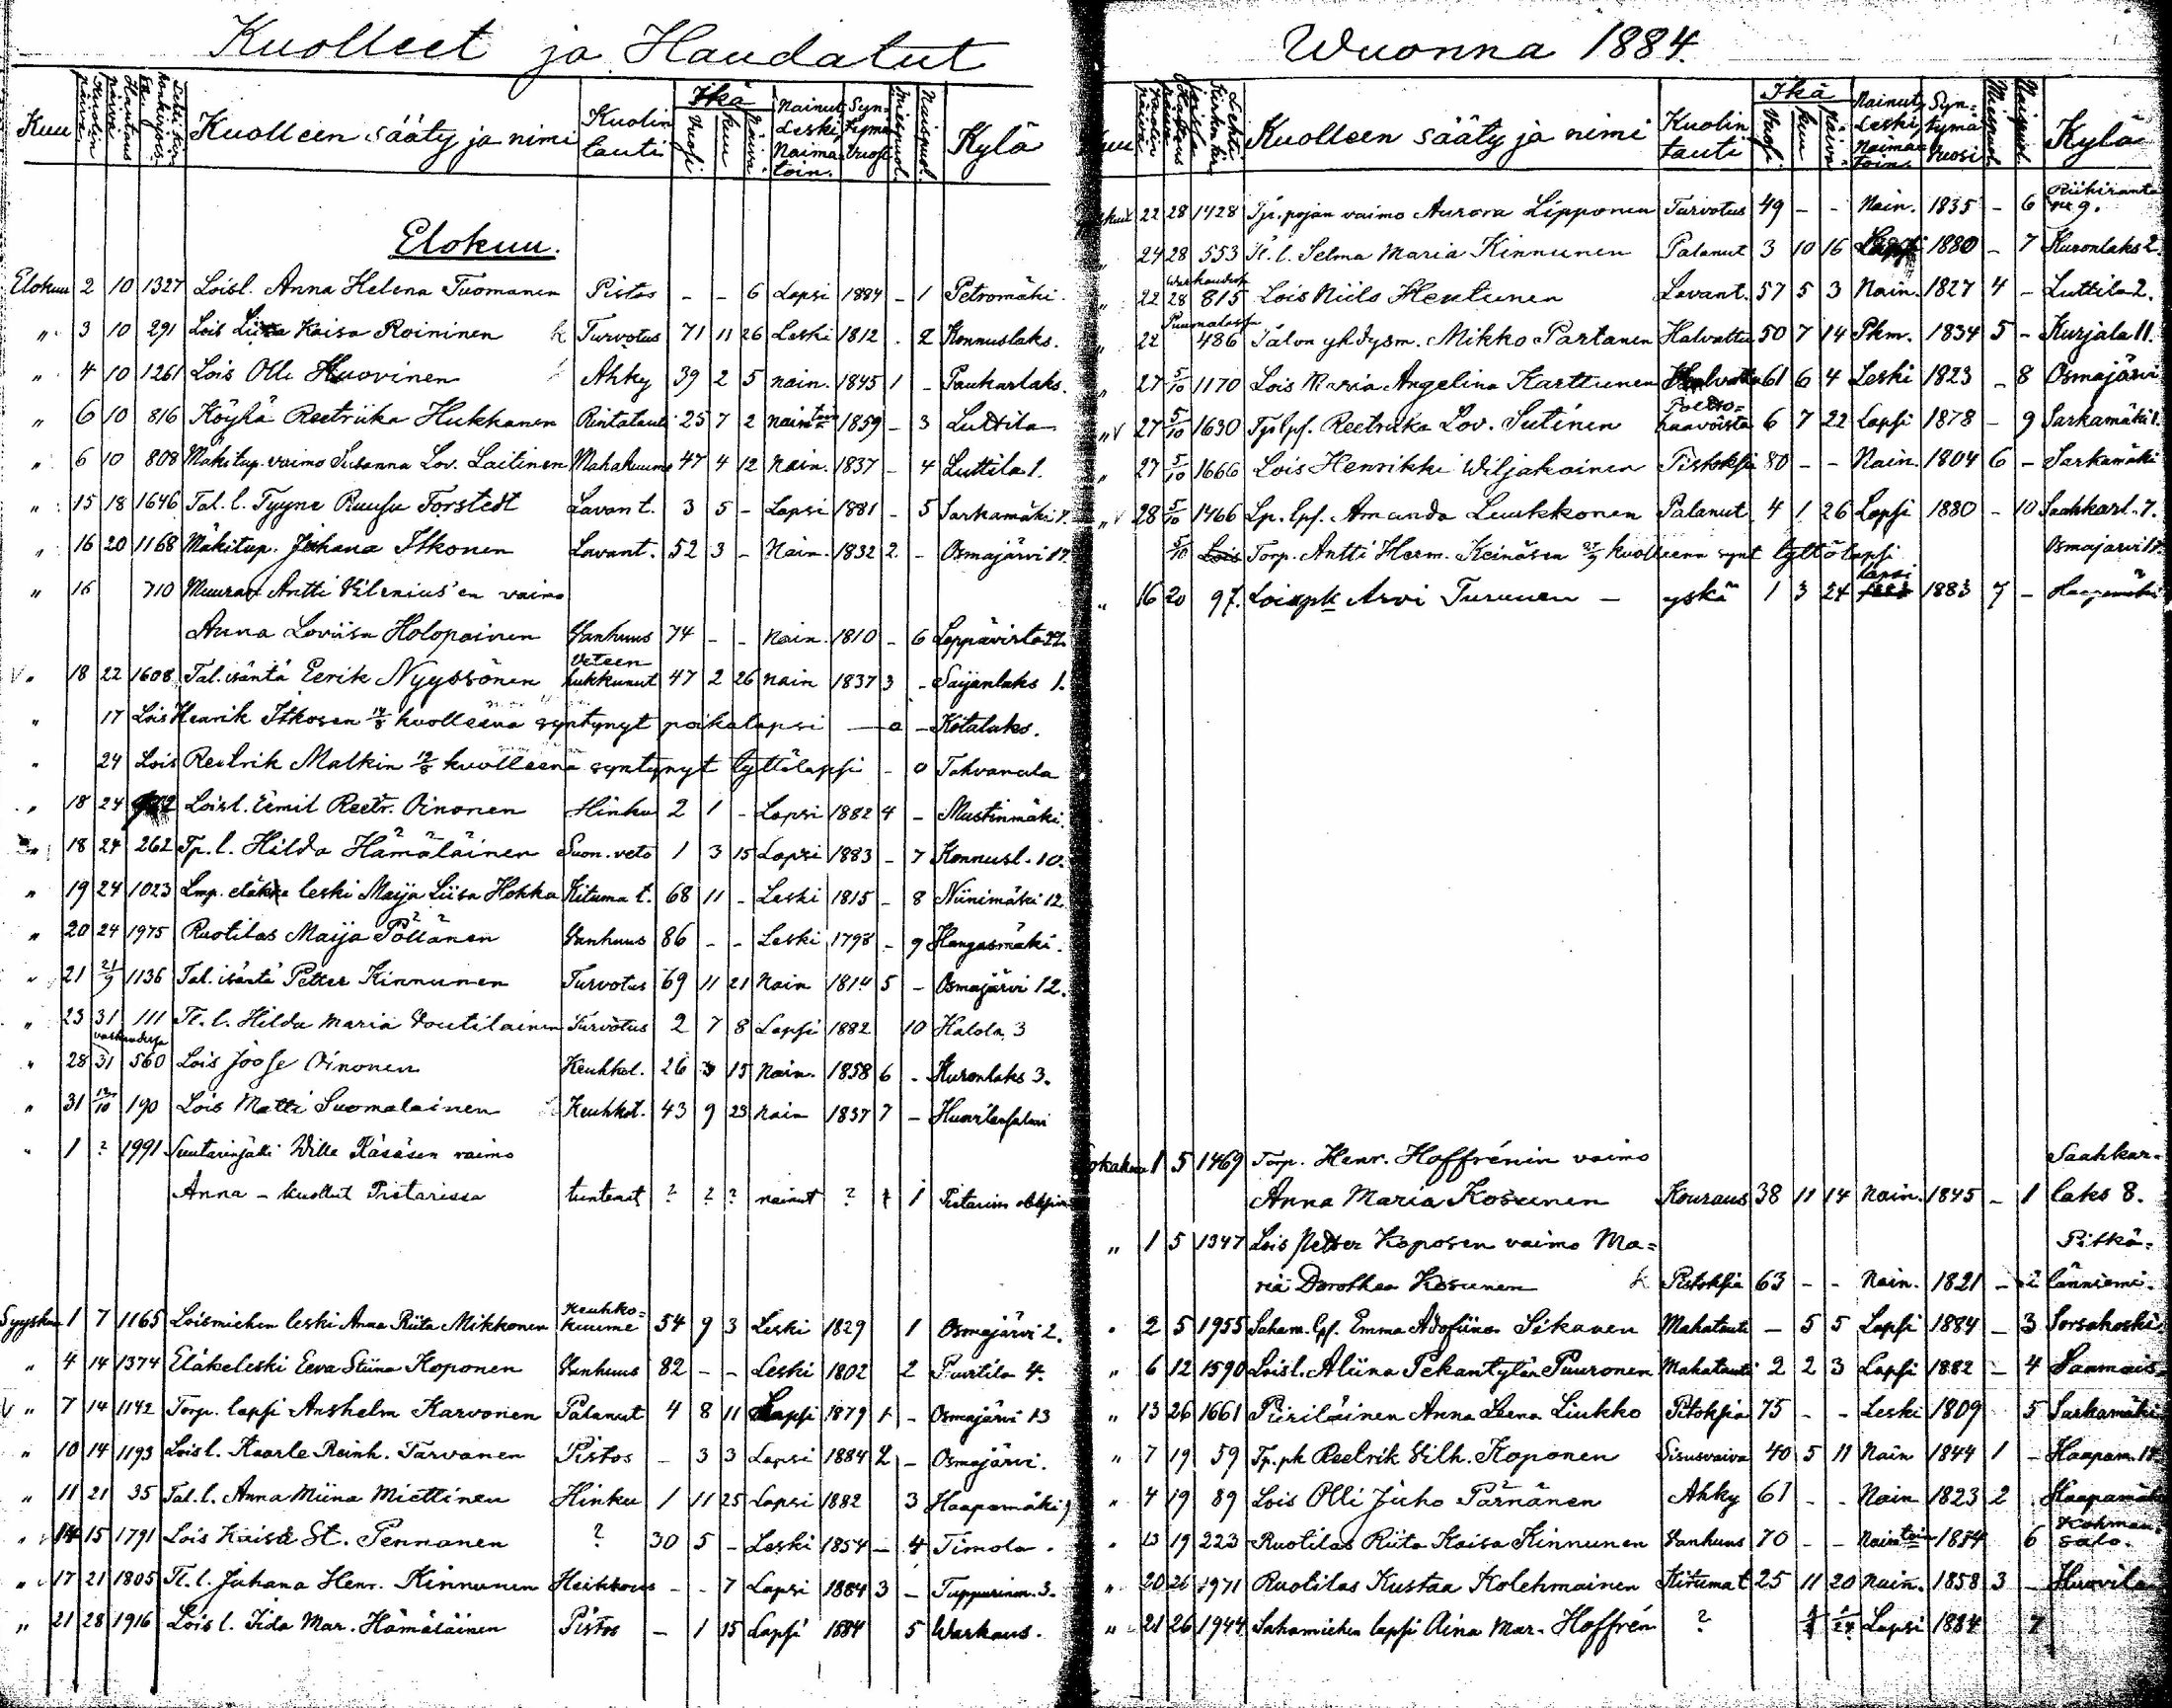 Kuolleet ja Haudatut
Kuu
Kuolleen sääty ja nimi
Kuolin tauti
Ikä
Vuosi
kuu
Päivä
Nainut Leski Naima toin.
Syntymä vuosi
Miespuol.
Naispuol.
Kylä
Elokuu.
Elokuu 2 10 1327 Loisl. Anna Helena Tuomanen Pistos - - 6 Lapsi 1884 - 1 Petromäki.
" 3 10 291 Lois Liisa Kaisa Roininen Turvotus 71 11 26 Leski 1812 . 2 Konnuslaks.
" 4 10 1261 Lois Olli Huovinen Ahky 39 2 5 nain. 1845 1 - Paukarlaks.
" 6 10 816 Köyhä Reetriika Hukkanen Rintatauti 25 7 2 naintoin 1859 - 3 Luttila
" 6 10 808 Mäkitup. vaimo Susanna Lov. Laitinen Mahakuume 47 4 12 nain. 1837 - 4 Luttila 1.
" 15 18 1646 Tal. l. Tyyne Ruusu Forstedt Lavant. 3 5 - Lapsi 1881 - 5 Sarkamäki 7.
" 16 20 1168 Mäkitup. Juhana Itkonen Lavant. 52 3 - Nain. 1832 2 - Osmajärvi 17.
" 16 710 Muurar Antti Vilenius'en vaimo
Anna Loviisa Holopainen Vanhuus 74 - - Nain. 1810 - 6 Leppävirta 22.
V " 18 22 1608 Tal. isäntä Eerik Nyyssönen Veteen hukkunut 47 2 26 nain 1837 3 - Saijanlaks 1.
" 17 Lois Henrik Itkosen 14/8 kuolleena syntynyt poikalapsi - o - Kotalaks.
" 24 Lois Reetrik Malkin 19/8 kuolleena syntynyt tyttölapsi - o Tahvanala
" 18 24 Loisl. Eemil Reetr. Oinonen Hinku 2 1 - Lapsi 1882 4 - Mustinmäki.
" 18 24 262 Tp. l. Hilda Hämäläinen Suon. veto 1 3 15 Lapsi 1883 - 7 Konnusl. 10.
" 19 24 1023 Lmp. eläke leski Maija Liisa Hokka Kituma t. 68 11 - Leski 1815 - 8 Niinimäki 12.
" 20 24 1975 Ruotilas Maija Pöllänen Vanhuus 86 - - Leski 1798 - 9 Kangasmäki.
" 21 21/9 1136 Tal. isäntä Petter Kinnunen Turvotus 69 11 21 Nain 1814 5 - Osmajärvi 12.
" 23 31 111 Tl. l. Hilda Maria Voutilainen Turvotus 2 7 8 Lapsi 1882 10 Halola 3
" 28 31 560 Lois Joose Oinonen Keuhkol. 26 15 Nain. 1858 6 - Kuronlaks 3.
" 31 12/10 190 Lois Matti Suomalainen Keuhkot. 43 9 23 nain 1837 7 -
" 1 ? 1991 Suutarinjäki Wille Räsäsen vaimo
Anna - kuollut Pietarissa tuntemat ? ? ? nainut ? 1
Syysk 1 7 1165 Loismiehen leski Anna Riita Mikkonen Keuhko=kuume 54 9 3 Leski 1829 1 Osmajärvi 2.
" 4 14 1374 Eläkeleski Eeva Stiina Koponen Vanhuus 82 - - Leski 1802 2 Puurtila 4.
V " 7 14 1142 Torp. lapsi Anshelm Karvonen Palanut 4 8 11 Lapsi 1879 1 - Osmajärvi 13
" 10 14 1193 Loisl. Kaarle Reinh. Tarvanen Pistos - 3 3 Lapsi 1884 2 - Osmajärvi.
" 11 21 35 Tal. l. Anna Miina Miettinen Hinku 1 11 25 Lapsi 1882 3 Haapamäki 9
" 14 15 1791 Lois Kaisa St. Pennanen ? 30 5 - Leski 1854 - 4 Timola.
" 17 21 1805 Tl. l. Juhana Henr. Kinnunen Heikkous - - 7 Lapsi 1884 3 - Tuppurinm. 3.
" 21 28 1916 Lois l. Iida Mar. Hämäläinen Pistos - 1 15 Lapsi 1884 5 Warkaus.
Wuonna 1884.
Kuu
Kuolleen sääty ja nimi
Kuolin tauti
Ikä
Vuosi
kuu
Päivä
Nainut Leski Naima toin.
Syntymä vuosi
Miespuol.
Naispuol.
Kylä
22 28 1428 Tp. pojan vaimo Aurora Lipponen Turvotus 49 - - Nain. 1835 - 6 Riihiranta nr 9.
" 24 28 553 Tl. l. Selma Maria Kinnunen Palanut 3 10 16 Lapsi 1880 - 7 Kuronlaks 2.
" 22 28 815 Lois Niilo Hentunen Lavant. 57 5 3 Nain. 1827 4 - Luttila 2.
" 22 Puumalassa 486 Talon yhdysm. Mikko Partanen Halvattu 50 7 14 Pkm. 1834 5 - Kurjala 11.
" 27 5/10 1170 Lois Maria Angelina Karttunen Halvattu 61 6 4 Leski 1823 - 8 Osmajärvi
" V 27 5/10 1630 Tp. lps. Reetriikka Lov. Sutinen Poltto=haavoista 6 7 22 Lapsi 1878 - 9 Sarkamäki 1.
" 27 5/10 1666 Lois Henrikki Wiljakainen Pistoksia 80 - - Nain. 1804 6 - Sarkamäki
" V 28 5/10 1466 Lp. lps. Amanda Luukkonen Palanut 4 1 26 Lapsi 1880 - 10 Saahkarl. 7.
5/10 Lois Torp. Antti Herm. Keinäsen 27/9 kuolleena synt tyttölapsi Osmajärvi 17.
" 16 20 97. Loispk Arvi Turunen - yskä 1 3 24 Lapsi 1883 7 - Haapamäki
Lokakuu 1 5 1469 Torp. Henr. Hoffrénin vaimo
Anna Maria Kosunen Kouraus 38 11 14 Nain. 1845 - 1 Saahkar=laks 8.
" 1 5 1347 Lois Petter Koposen vaimo Ma=
ria Dorothea Kosunen Pistoksia 63 - - Nain. 1821 - 2 Pitkä=länniemi.
" 2 5 1955 Saham. lps. Emma Adofiina Sikanen Mahatauti - 5 5 Lapsi 1884 - 3 Sorsakoski
" 6 12 1590 Loisl. Aliina Pekantytär Puuronen Mahatauti 2 2 3 Lapsi 1882 - 4 Saamais
" 13 26 1661 Piiriläinen Anna Leena Liukko Pistoksia 75 - - Leski 1809 5 Sarkamäki
" 7 19 59 Tp. pk Reetrik Vilh. Koponen Sisusvaiva 40 5 11 Nain 1844 1 - Haapam. 14
" 4 19 89 Lois Olli Juho Pärnänen Ahky 61 - - Nain 1823 2 Haapamäki
" 13 19 223 Ruotilas Riita Kaisa Kinnunen Vanhuus 70 - - Naintoin 1814 6 Kohman salo.
" 20 26 1971 Ruotilas Kustaa Kolehmainen Kitumat 25 11 20 nain. 1858 3 - Huovila
" 21 26 1944 Sahamiehen lapsi Aina Mar. Hoffrén ? Lapsi 1884 7